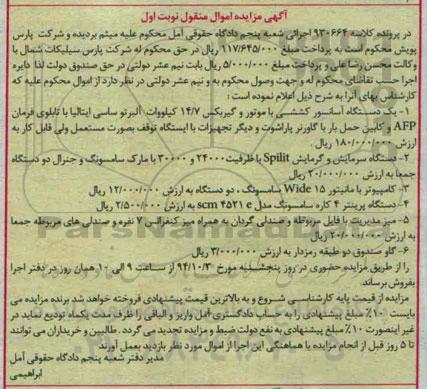 آگهی مزایده اموال منقول نوبت اول
در پرونده کلاسه ۹۳۰۶۶۴ اجرائی شعبه پنجم دادگاه حقوقی آمل محکوم علیه میثم بردیده و شرکت پارس
پویش محکوم است به پرداخت مبلغ ۱۱۷/۶۴۵/۰۰۰ ریال در حق محکوم له شرکت پارس سیلیکات شمال با
وکالت محسن رضا علی و پرداخت مبلغ ۵/۰۰۰/۰۰۰ ریال بابت نیم عشر دولتی در حق صندوق دولت لذا دایره
اجرا حسب تقاضای محکوم له و جهت وصول محکوم به و نیم عشر دولتی در نظر دارد از اموال محکوم علیه که
کارشناس بهای آنرا به شرح ذیل اعلام نموده است :
۱- یک دستگاه آسانسور کششی با موتور و گیربکس ۱۴/۷ کیلووات آلبرتو ساسی ایتالیا با تابلوی فرمان
AFP و کابین حمل بار با گاورنر پاراشوت و دیگر تجهیزات با ایستگاه توقف بصورت مستعمل ولی قابل کار به
ارزش ۱۸۰/۰۰۰/۰۰۰ ریال
۲- دستگاه سرمایش و گرمایش Spilit با ظرفیت ۲۴۰۰۰ و ۳۰۰۰۰ با مارک سامسونگ و جنرال دو دستگاه
جمعا به ارزش ۲۰/۰۰۰/۰۰۰ ریال
۳- کامپیوتر با مانیتور ۱۵ Wide سامسونگ ، دو دستگاه به ارزش ۱۲/۰۰۰/۰۰۰ ریال
۴- دستگاه پرینتر ۴ کاره سامسونگ مدل scm ۴۵۲۱ e به ارزش ۲/۵۰۰/۰۰۰ ریال
۵- میز مدیریت با فایل مربوطه و صندلی گردان به همراه میز کنفرانس ۷ نفره و صندلی های مربوطه جمعا
به ارزش ۲۰/۰۰۰/۰۰۰ ریال
۶- گاو صندوق دو طبقه رمزدار به ارزش ۳/۰۰۰/۰۰۰ ریال
را از طریق مزایده حضوری در روز پنجشنبه مورخ ۹۴/۱۰/۳ از ساعت ۹ الی ۱۰ همان روز در دفتر اجرا
بفروش برساند.
مزایده از قیمت پایه کارشناسی شروع و به بالاترین قیمت پیشنهادی فروخته خواهد شد برنده مزایده می
بایست ۱۰٪ مبلغ پیشنهادی را به حساب دادگستری آمل واریز و الباقی را ظرف مدت یکماه تودیع نماید در
غیر اینصورت ۱۰٪ مبلغ پیشنهادی به نفع دولت ضبط و مزایده تجدید می گردد. طالبین و خریداران می توانند
تا ۵ روز قبل از انجام مزایده با هماهنگی این اجرا از اموال مورد نظر بازدید بعمل آورند
مدیر دفتر شعبه پنجم دادگاه حقوقی آمل
ابراهیمی